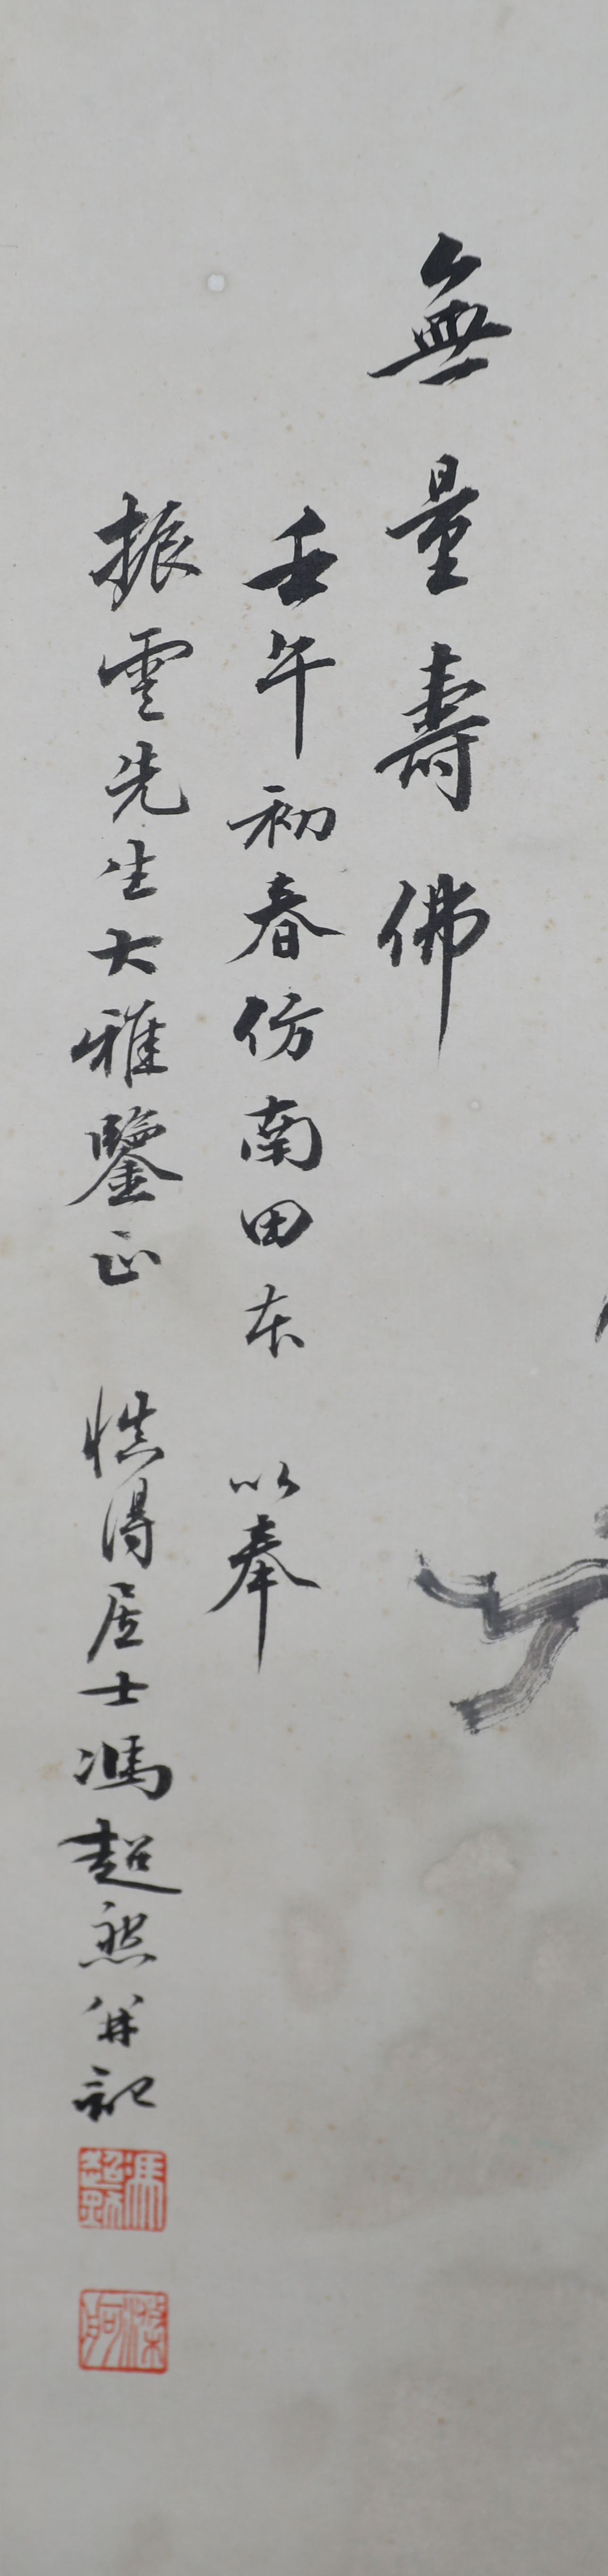 無量壽佛
壬午初春仿南田本 以奉
振雲先生大雅鑒正 慎得居士馮超然并記
馮超然
滌舸